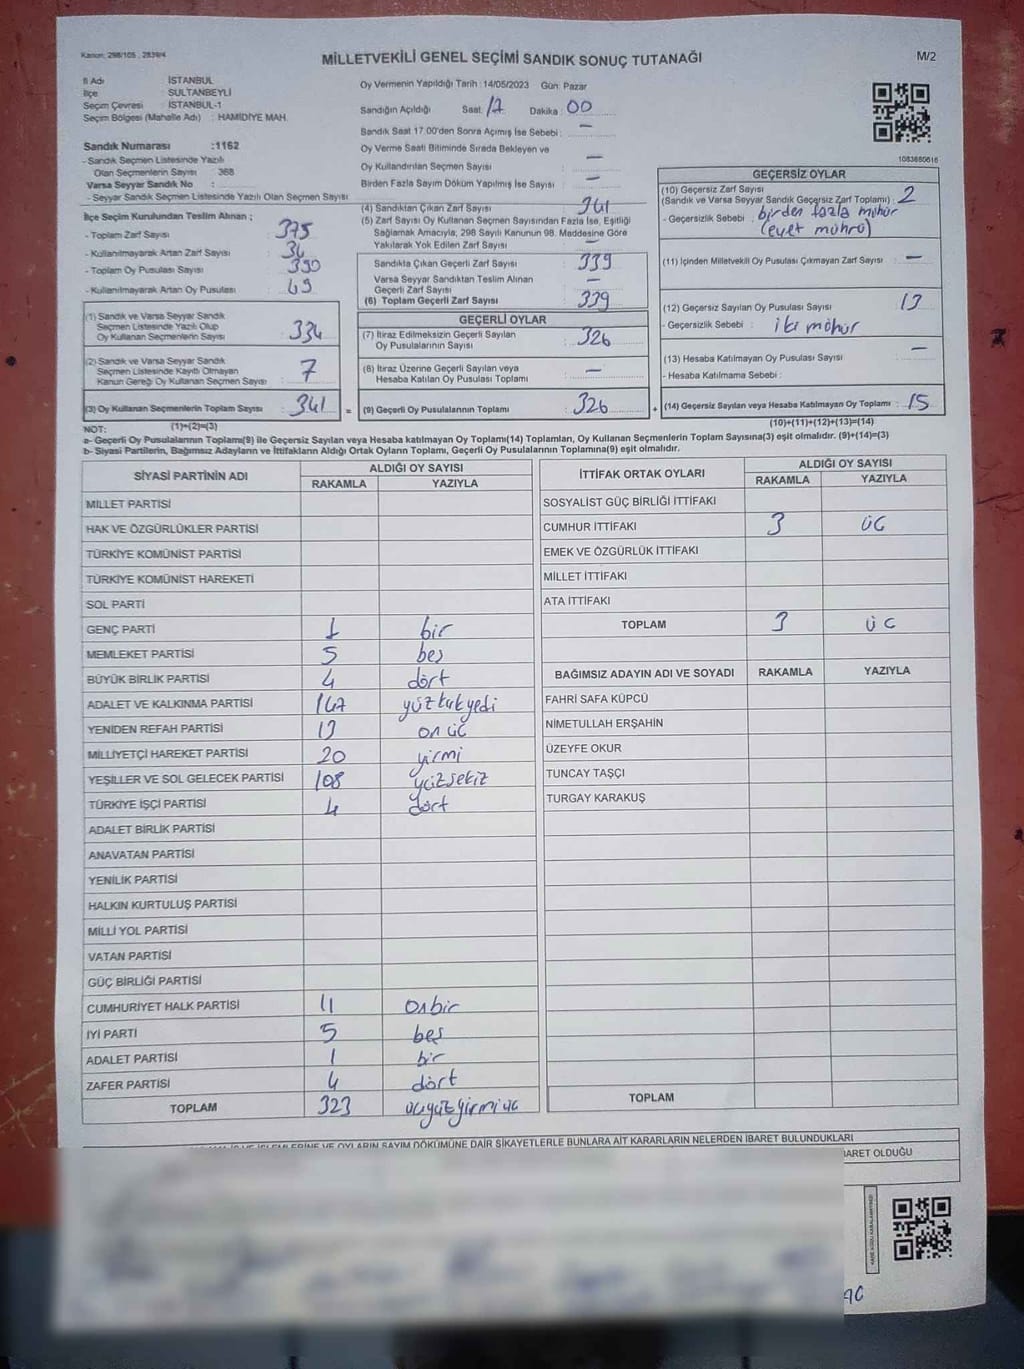 Kanun: 298/105, 2839/4
MİLLETVEKİLİ GENEL SEÇİMİ SANDIK SONUÇ TUTANAĞI
M/2
İl Adı İSTANBUL
İlçe SULTANBEYLİ
Seçim Çevresi : İSTANBUL-1
Seçim Bölgesi (Mahalle Adı) : HAMİDİYE MAH.
Sandık Numarası :1162
- Sandık Seçmen Listesinde Yazılı
Olan Seçmenlerin Sayısı : 368
Varsa Seyyar Sandık No :
- Seyyar Sandık Seçmen Listesinde Yazılı Olan Seçmen Sayısı
Oy Vermenin Yapıldığı Tarih : 14/05/2023 Gün: Pazar
Sandığın Açıldığı Saat: 17 Dakika : 00
Sandık Saat 17.00'den Sonra Açımış İse Sebebi : —
Oy Verme Saati Bitiminde Sırada Bekleyen ve
Oy Kullandırılan Seçmen Sayısı —
Birden Fazla Sayım Döküm Yapılmış İse Sayısı —
1083880616
İlçe Seçim Kurulundan Teslim Alınan ;
- Toplam Zarf Sayısı 375
- Kullanılmayarak Artan Zarf Sayısı 34
- Toplam Oy Pusulası Sayısı 390
- Kullanılmayarak Artan Oy Pusulası 49
(1) Sandık ve Varsa Seyyar Sandık
Seçmen Listesinde Yazılı Olup
Oy Kullanan Seçmenlerin Sayısı : 334
(2) Sandık ve Varsa Seyyar Sandık
Seçmen Listesinde Kayıtlı Olmayan
Kanun Gereği Oy Kullanan Seçmen Sayısı : 7
(3) Oy Kullanan Seçmenlerin Toplam Sayısı : 341 =
(1)+(2)=(3)
(4) Sandıktan Çıkan Zarf Sayısı 341
(5) Zarf Sayısı Oy Kullanan Seçmen Sayısından Fazla İse, Eşitliği
Sağlamak Amacıyla; 298 Sayılı Kanunun 98. Maddesine Göre
Yakılarak Yok Edilen Zarf Sayısı —
Sandıkta Çıkan Geçerli Zarf Sayısı : 339
Varsa Seyyar Sandıktan Teslim Alınan
Geçerli Zarf Sayısı —
(6) Toplam Geçerli Zarf Sayısı : 339
GEÇERLİ OYLAR
(7) İtiraz Edilmeksizin Geçerli Sayılan
Oy Pusulalarının Sayısı : 326
(8) İtiraz Üzerine Geçerli Sayılan veya
Hesaba Katılan Oy Pusulası Toplamı : —
(9) Geçerli Oy Pusulalarının Toplamı : 326 +
GEÇERSİZ OYLAR
(10) Geçersiz Zarf Sayısı
(Sandık ve Varsa Seyyar Sandık Geçersiz Zarf Toplamı) : 2
- Geçersizlik Sebebi : birden fazla mühür
(evet mührü)
(11) İçinden Milletvekili Oy Pusulası Çıkmayan Zarf Sayısı : —
(12) Geçersiz Sayılan Oy Pusulası Sayısı 13
- Geçersizlik Sebebi : iki mühür
(13) Hesaba Katılmayan Oy Pusulası Sayısı —
- Hesaba Katılmama Sebebi :
(14) Geçersiz Sayılan veya Hesaba Katılmayan Oy Toplamı : 15
(10)+(11)+(12)+(13)=(14)
NOT:
a- Geçerli Oy Pusulalarının Toplamı(9) ile Geçersiz Sayılan veya Hesaba katılmayan Oy Toplamı(14) Toplamları, Oy Kullanan Seçmenlerin Toplam Sayısına(3) eşit olmalıdır. (9)+(14)=(3)
b- Siyasi Partilerin, Bağımsız Adayların ve İttifakların Aldığı Ortak Oyların Toplamı, Geçerli Oy Pusulalarının Toplamına(9) eşit olmalıdır.
SİYASİ PARTİNİN ADI ALDIĞI OY SAYISI
RAKAMLA YAZIYLA
MİLLET PARTİSİ
HAK VE ÖZGÜRLÜKLER PARTİSİ
TÜRKİYE KOMÜNİST PARTİSİ
TÜRKİYE KOMÜNİST HAREKETİ
SOL PARTİ
GENÇ PARTİ 1 bir
MEMLEKET PARTİSİ 5 beş
BÜYÜK BİRLİK PARTİSİ 4 dört
ADALET VE KALKINMA PARTİSİ 147 yüzkırkyedi
YENİDEN REFAH PARTİSİ 13 on üç
MİLLİYETÇİ HAREKET PARTİSİ 20 yirmi
YEŞİLLER VE SOL GELECEK PARTİSİ 108 yüzsekiz
TÜRKİYE İŞÇİ PARTİSİ 4 dört
ADALET BİRLİK PARTİSİ
ANAVATAN PARTİSİ
YENİLİK PARTİSİ
HALKIN KURTULUŞ PARTİSİ
MİLLİ YOL PARTİSİ
VATAN PARTİSİ
GÜÇ BİRLİĞİ PARTİSİ
CUMHURİYET HALK PARTİSİ 11 onbir
İYİ PARTİ 5 beş
ADALET PARTİSİ 1 bir
ZAFER PARTİSİ 4 dört
TOPLAM 323 üçyüzyirmiüç
İTTİFAK ORTAK OYLARI ALDIĞI OY SAYISI
RAKAMLA YAZIYLA
SOSYALİST GÜÇ BİRLİĞİ İTTİFAKI
CUMHUR İTTİFAKI 3 ÜÇ
EMEK VE ÖZGÜRLÜK İTTİFAKI
MİLLET İTTİFAKI
ATA İTTİFAKI
TOPLAM 3 ÜÇ
BAĞIMSIZ ADAYIN ADI VE SOYADI RAKAMLA YAZIYLA
FAHRİ SAFA KÜPCÜ
NİMETULLAH ERŞAHİN
ÜZEYFE OKUR
TUNCAY TAŞÇI
TURGAY KARAKUŞ
TOPLAM
İŞLEMLERİNE VE OYLARIN SAYIM DÖKÜMÜNE DAİR ŞİKAYETLERLE BUNLARA AİT KARARLARIN NELERDEN İBARET BULUNDUKLARI
BARET OLDUĞU